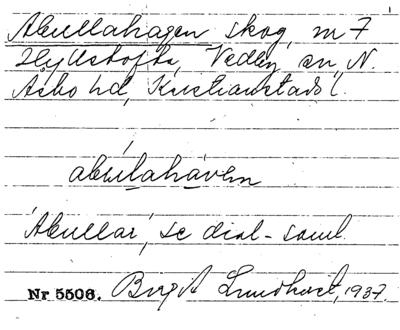 Abullahagen skog, nr 7
Hyllstofta, Vedby sn, N.
Åsbo hd, Kristianstads l.
abu̱laha̱ven
'Abullar', se dial-saml.
Nr 5506. Birgit Lundkvist, 1937.